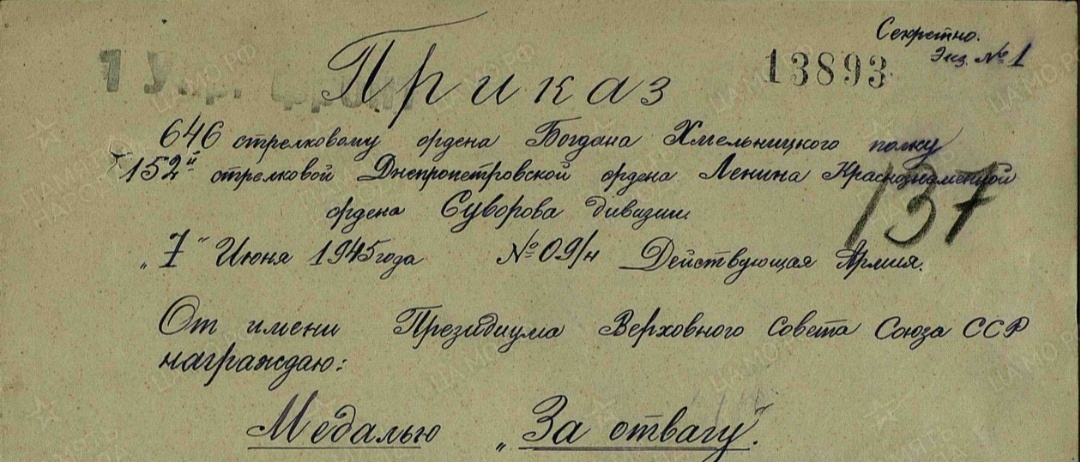 Секретно.
Экз. №1
1 Укр. Фронт
13893
Приказ
646 стрелковому ордена Богдана Хмельницкого полку
152й стрелковой Днепропетровской ордена Ленина Краснознаменной
137
ордена Суворова дивизии
"7" Июня 1945 года №09/н Действующая Армия.
От имени Президиума Верховного Совета Союза ССР
награждаю:
Медалью "За отвагу".